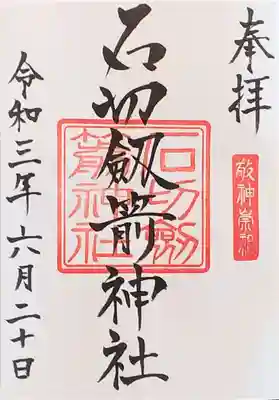 奉拝
敬神崇祖
石切劔箭神社
石切劔
箭神社
令和三年六月二十日